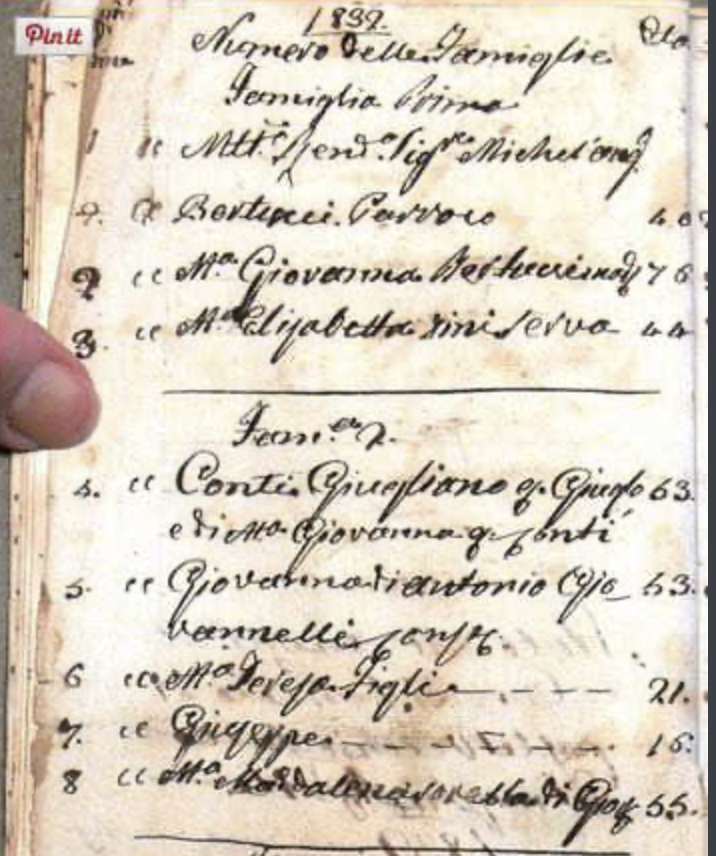 Pin it
1832.
Numero delle Famiglie
Famiglia Prima
1 " Mlt.º Rend.º Sig.re Michel'ang.
2. Bertucci Parroco
2 " M.a Giovanna Bertucci 76
3. " M.a Elisabetta serva 44
Fam.ia 2.
4. " Conti Giugliano q. 53.
e di M.a Giovanna q. Conti
5. " Giovanna di Antonio Gio 53.
vannelli
6 " M.a Teresa Figli 21.
7. " Giuseppe 16.
8 " M.a Maddalena sorella di 55.